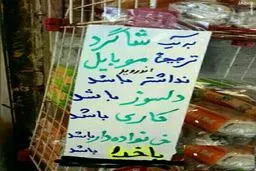 به یک شاگرد
ترجیحاً موبایل
اندروید
نداشته باشد
دلسوز باشد
کاری باشد
خدا باشد
باخدا باشد